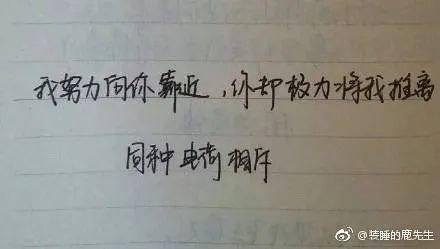 我努力向你靠近，你却极力将我推离
同种电荷相斥
@装睡的鹿先生